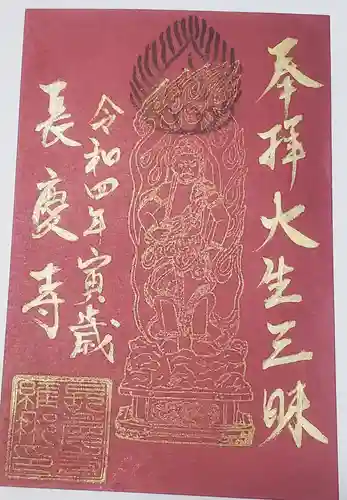 奉拝 大生三昧
令和四年 寅歳
長慶寺